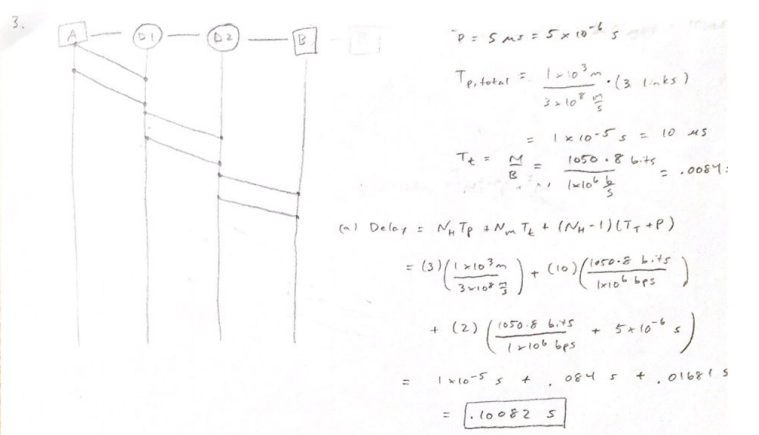 3.
A — D1 — D2 — B
P = 5 μs = 5 × 10^-6 s
T_p,total = 1×10^3 m / 3×10^8 m/s · (3 links)
= 1 × 10^-5 s = 10 μs
T_t = M/B = 1050·8 bits / 1×10^6 b/s = .0084
(a) Delay = N_H T_P + N_m T_t + (N_H - 1)(T_T + P)
= (3)(1×10^3 m / 3×10^8 m/s) + (10)(1050·8 bits / 1×10^6 bps)
+ (2)(1050·8 bits / 1×10^6 bps + 5×10^-6 s)
= 1×10^-5 s + .084 s + .01681 s
= .10082 s